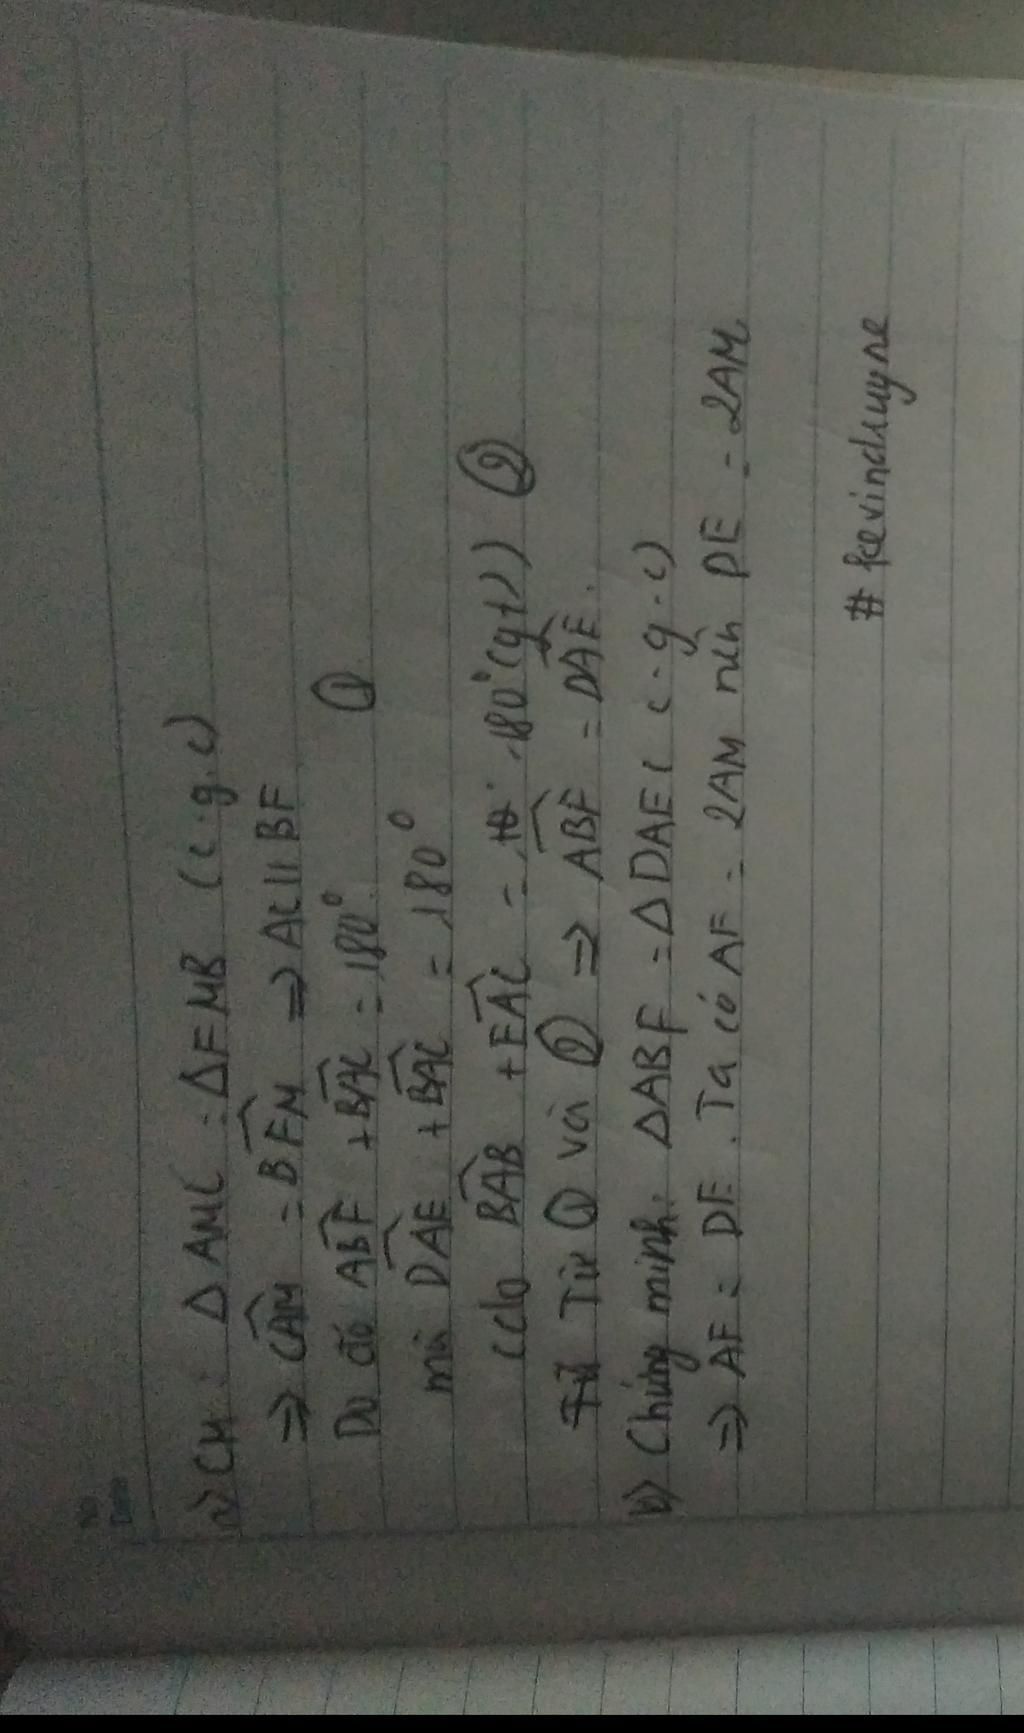 No
Date
a) CM: Δ AMC = ΔFMB (c.g.c)
⇒ CAM = BFM ⇒ AC // BF
Do đó ABF + BAC = 180° ①
mà DAE + BAC = 180°
(do BAB + EAC = 180° (gt)) ②
Từ ① và ② ⇒ ABF = DAE.
b) Chứng minh: ΔABF = ΔDAE ( c.g.c)
⇒ AF = DE. Ta có AF = 2AM nên DE = 2AM
# kevindruyne